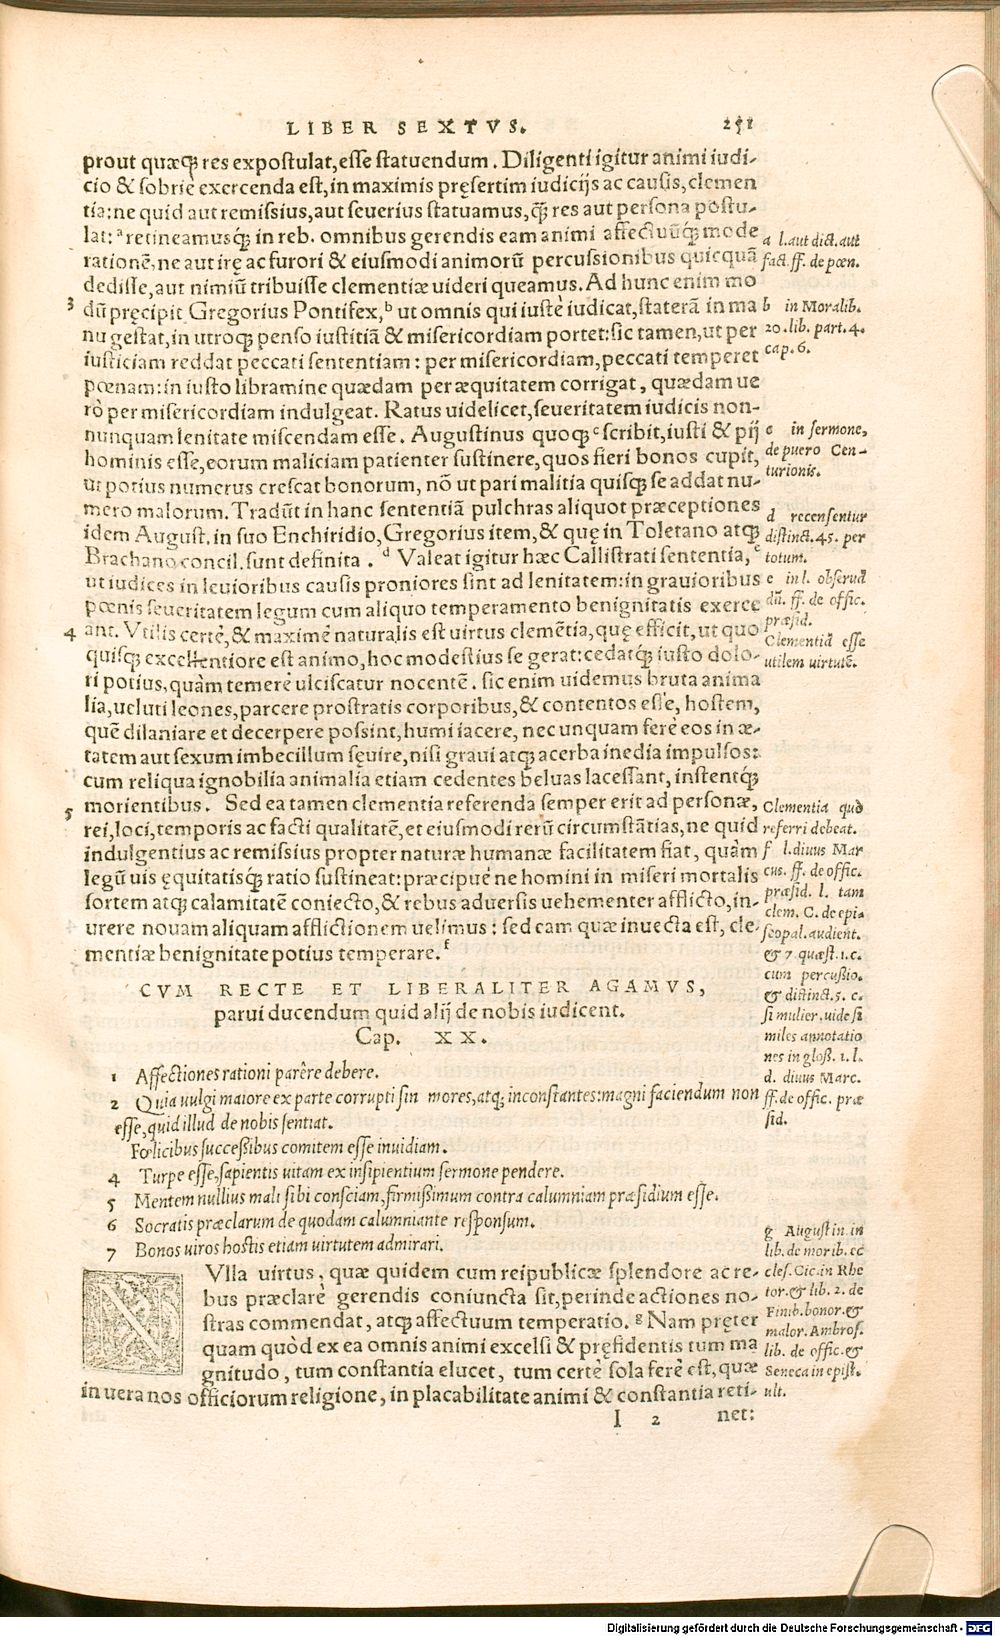 LIBER SEXTVS. 251
prout quæq́ꝫ res expostulat, esse statuendum. Diligenti igitur animi iudi-
cio & sobriè exercenda est, in maximis pręsertim iudicijs ac causis, clemen
tia: ne quid aut remissius, aut seuerius statuamus, q̃ꝫ res aut persona postu-
lat: ᵃ retineamusq́ꝫ in reb. omnibus gerendis eam animi affectuũq́ꝫ mode
rationẽ, ne aut irę ac furori & eiusmodi animorũ percussionibus quicquã
dedisse, aut nimiũ tribuisse clementiæ uideri queamus. Ad hunc enim mo
3 dũ pręcipit Gregorius Pontifex, ᵇ ut omnis qui iustè iudicat, staterã in ma
nu gestat, in utroqꝫ penso iustitiã & misericordiam portet: sic tamen, ut per
iusticiam reddat peccati sententiam: per misericordiam, peccati temperet
pœnam: in iusto libramine quædam per æquitatem corrigat, quædam ue
rò per misericordiam indulgeat. Ratus uidelicet, seueritatem iudicis non-
nunquam lenitate miscendam esse. Augustinus quoqꝫ ᶜ scribit, iusti & pij
hominis esse, eorum maliciam patienter sustinere, quos fieri bonos cupit,
ut potius numerus crescat bonorum, nõ ut pari malitia quisqꝫ se addat nu-
mero malorum. Tradũt in hanc sententiã pulchras aliquot præceptiones
idem August. in suo Enchiridio, Gregorius item, & quę in Toletano atqꝫ
Brachano concil. sunt definita. ᵈ Valeat igitur hæc Callistrati sententia, ᵉ
ut iudices in leuioribus causis proniores sint ad lenitatem: in grauioribus
pœnis seueritatem legum cum aliquo temperamento benignitatis exerce
4 ant. Vtilis certè, & maximè naturalis est uirtus clemẽtia, quę efficit, ut quo
quisqꝫ excellentiore est animo, hoc modestius se gerat: cedatq́ꝫ iusto dolo-
ri potius, quàm temerè ulciscatur nocentẽ. sic enim uidemus bruta anima
lia, ueluti leones, parcere prostratis corporibus, & contentos esse, hostem,
quẽ dilaniare et decerpere possint, humi iacere, nec unquam ferè eos in æ-
tatem aut sexum imbecillum sęuire, nisi graui atqꝫ acerba inedia impulsos:
cum reliqua ignobilia animalia etiam cedentes beluas lacessant, instentq́ꝫ
5 morientibus. Sed ea tamen clementia referenda semper erit ad personæ,
rei, loci, temporis ac facti qualitatẽ, et eiusmodi rerũ circumstãtias, ne quid
indulgentius ac remissius propter naturæ humanæ facilitatem fiat, quàm
legũ uis ęquitatisq́ꝫ ratio sustineat: præcipuè ne homini in miseri mortalis
sortem atqꝫ calamitatẽ coniecto, & rebus aduersis uehementer afflicto, in-
urere nouam aliquam afflictionem uelimus: sed eam quæ inuecta est, cle-
mentiæ benignitate potius temperare. ᶠ
a l. aut dict. aut
fact. ff. de pœn.
b in Moralib.
20. lib. part. 4.
cap. 6.
c in sermone,
de puero Cen-
turionis.
d recensentur
distinct. 45. per
totum.
e in l. obseruã
dũ. ff. de offic.
præsid.
Clementiã esse
utilem uirtutẽ.
Clementia quò
referri debeat.
f l. diuus Mar
cus. ff. de offic.
præsid. l. tam
clem. C. de epi-
scopal. audient.
& 7 quæst. 1. c.
cum percussio.
& distinct. 5. c.
si mulier, uide si
miles annotatio
nes in gloss. 1. l.
d. diuus Marc.
ff. de offic. præ
sid.
CVM RECTE ET LIBERALITER AGAMVS,
parui ducendum quid alij de nobis iudicent.
Cap. XX.
1 Affectiones rationi parêre debere.
2 Quia uulgi maiore ex parte corrupti sin mores, atqꝫ inconstantes: magni faciendum non
esse, quid illud de nobis sentiat.
Fœlicibus successibus comitem esse inuidiam.
4 Turpe esse, sapientis uitam ex insipientium sermone pendere.
5 Mentem nullius mali sibi consciam, firmissimum contra calumniam præsidium esse.
6 Socratis præclarum de quodam calumniante responsum.
7 Bonos uiros hostis etiam uirtutem admirari.
NVlla uirtus, quæ quidem cum reipublicæ splendore ac re-
bus præclarè gerendis coniuncta sit, perinde actiones no-
stras commendat, atqꝫ affectuum temperatio. ᵍ Nam pręter
quam quòd ex ea omnis animi excelsi & pręfidentis tum ma
gnitudo, tum constantia elucet, tum certè sola ferè est, quæ
in uera nos officiorum religione, in placabilitate animi & constantia reti-
g Augustin. in
lib. de morib. ec
cles. Cic. in Rhe
tor. & lib. 2. de
Finib. bonor. &
malor. Ambros.
lib. de offic. &
Seneca in epist.
ult.
I 2 net:
Digitalisierung gefördert durch die Deutsche Forschungsgemeinschaft - DFG